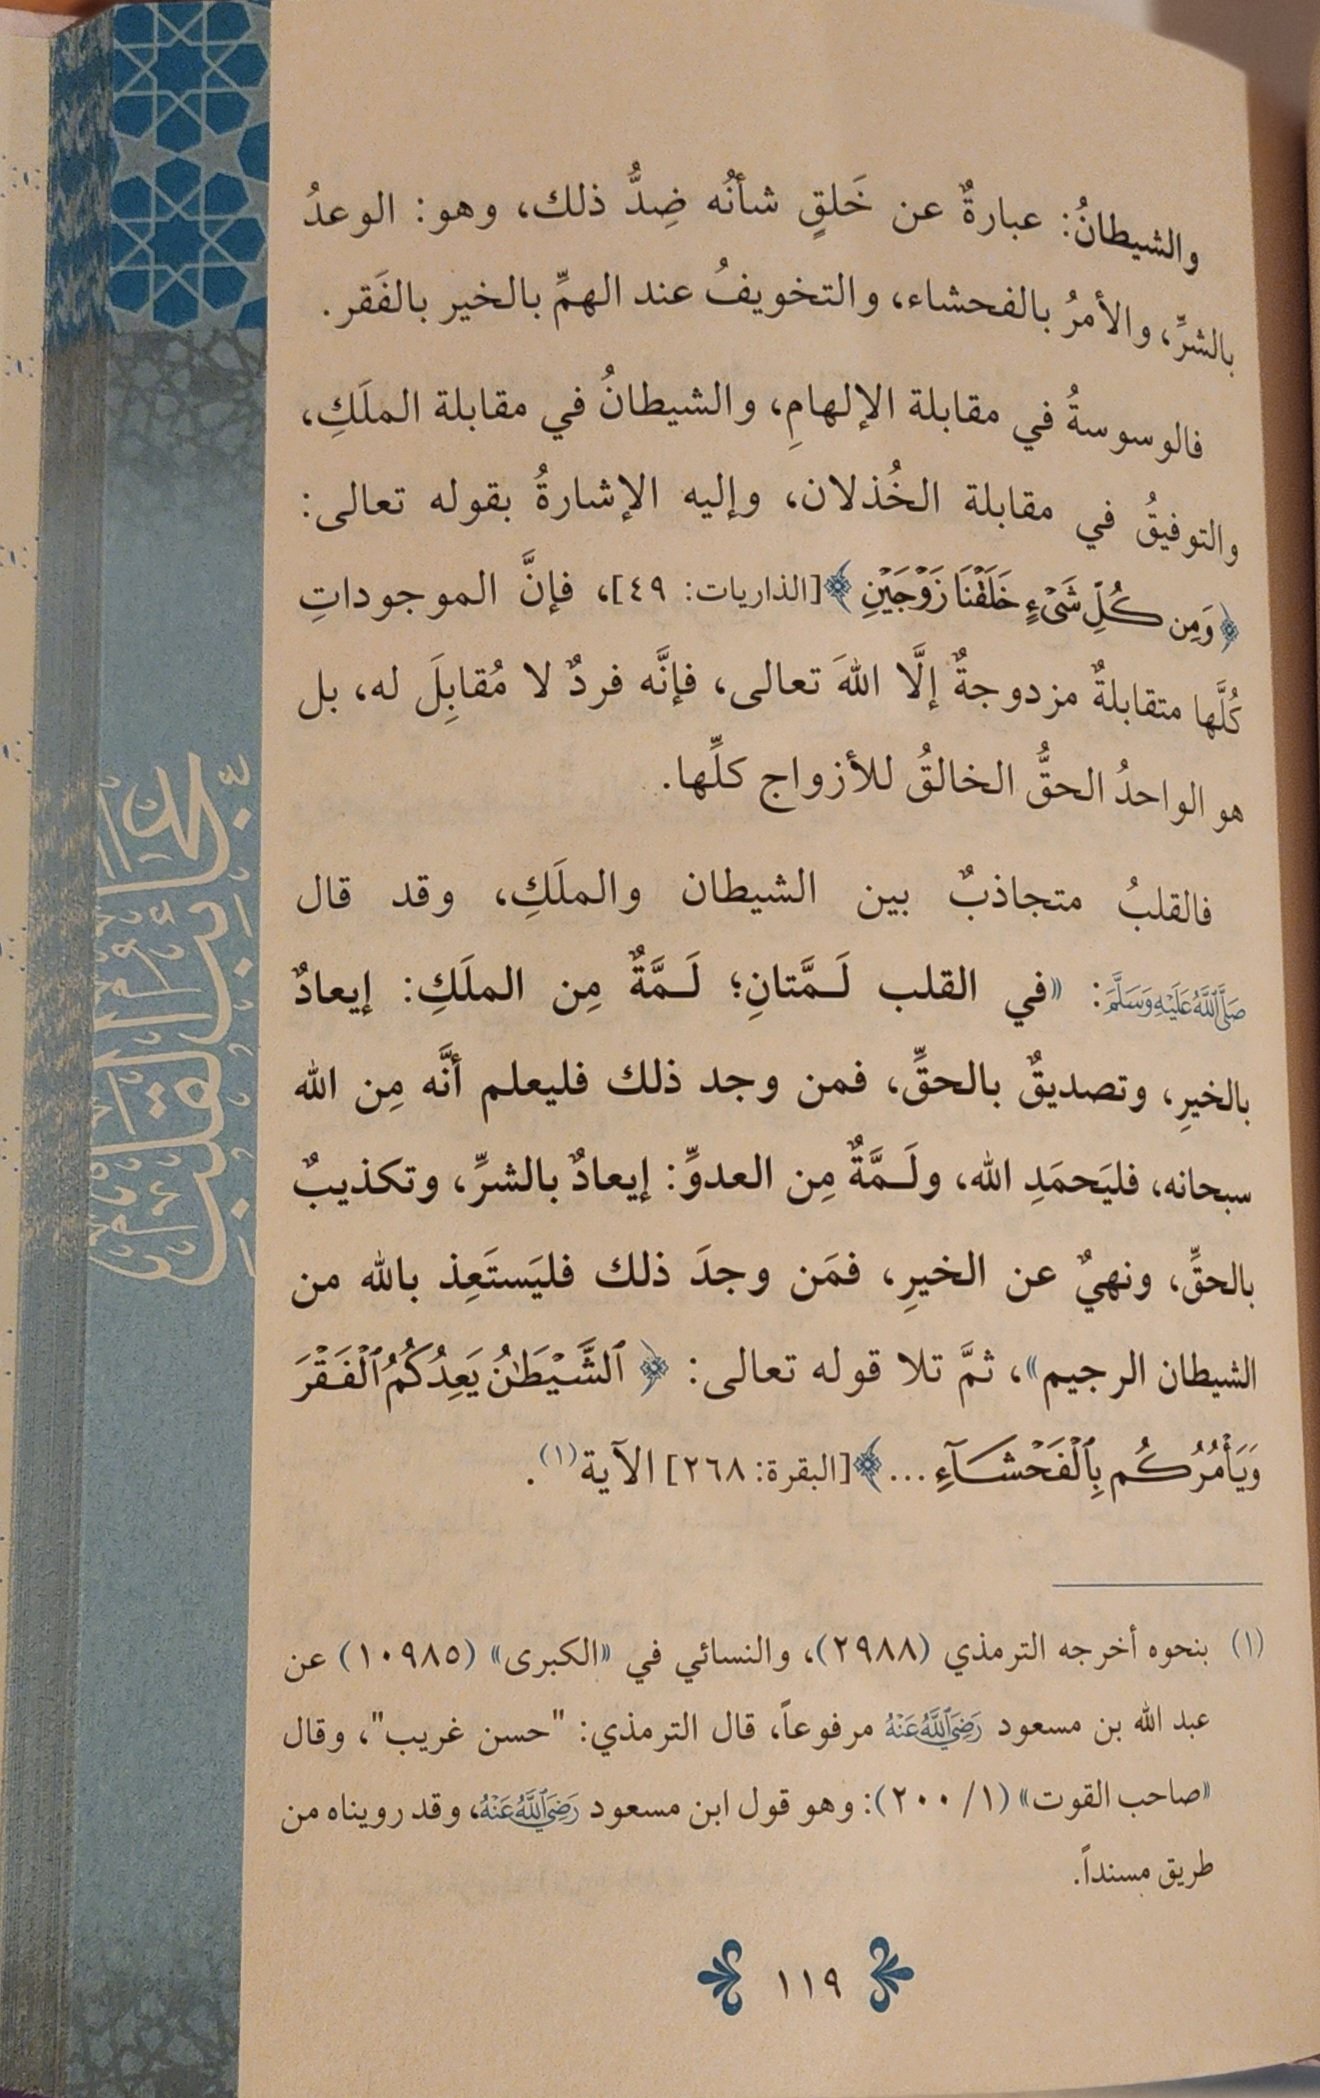 والشيطانُ: عبارةٌ عن خَلقٍ شأنُه ضِدُّ ذلك، وهو: الوعدُ
بالشرِّ، والأمرُ بالفحشاء، والتخويفُ عند الهمِّ بالخير بالفَقر.
فالوسوسةُ في مقابلة الإلهامِ، والشيطانُ في مقابلة الملَكِ،
والتوفيقُ في مقابلة الخُذلان، وإليه الإشارةُ بقوله تعالى:
﴿وَمِن كُلِّ شَىْءٍ خَلَقْنَا زَوْجَيْنِ﴾ [الذاريات: ٤٩]، فإنَّ الموجوداتِ
كُلَّها متقابلةٌ مزدوجةٌ إلَّا اللهَ تعالى، فإنَّه فردٌ لا مُقابِلَ له، بل
هو الواحدُ الحقُّ الخالقُ للأزواج كلِّها.
فالقلبُ متجاذبٌ بين الشيطان والملَكِ، وقد قال
صَلَّى اللَّهُ عَلَيْهِ وَسَلَّمَ: «في القلب لَـمَّتانِ؛ لَـمَّةٌ مِن الملَكِ: إيعادٌ
بالخيرِ، وتصديقٌ بالحقِّ، فمن وجد ذلك فليعلم أنَّه مِن الله
سبحانه، فليَحمَدِ الله، ولَـمَّةٌ مِن العدوِّ: إيعادٌ بالشرِّ، وتكذيبٌ
بالحقِّ، ونهيٌ عن الخيرِ، فمَن وجدَ ذلك فليَستَعِذ بالله من
الشيطان الرجيم»، ثمَّ تلا قوله تعالى: ﴿ٱلشَّيْطَٰنُ يَعِدُكُمُ ٱلْفَقْرَ
وَيَأْمُرُكُم بِٱلْفَحْشَآءِ ...﴾ [البقرة: ٢٦٨] الآية(١).
(١) بنحوه أخرجه الترمذي (٢٩٨٨)، والنسائي في «الكبرى» (١٠٩٨٥) عن
عبد الله بن مسعود رَضِيَ اللَّهُ عَنْهُ مرفوعاً، قال الترمذي: "حسن غريب"، وقال
«صاحب القوت» (١/ ٢٠٠): وهو قول ابن مسعود رَضِيَ اللَّهُ عَنْهُ، وقد رويناه من
طريق مسنداً.
١١٩
عجائب القلب